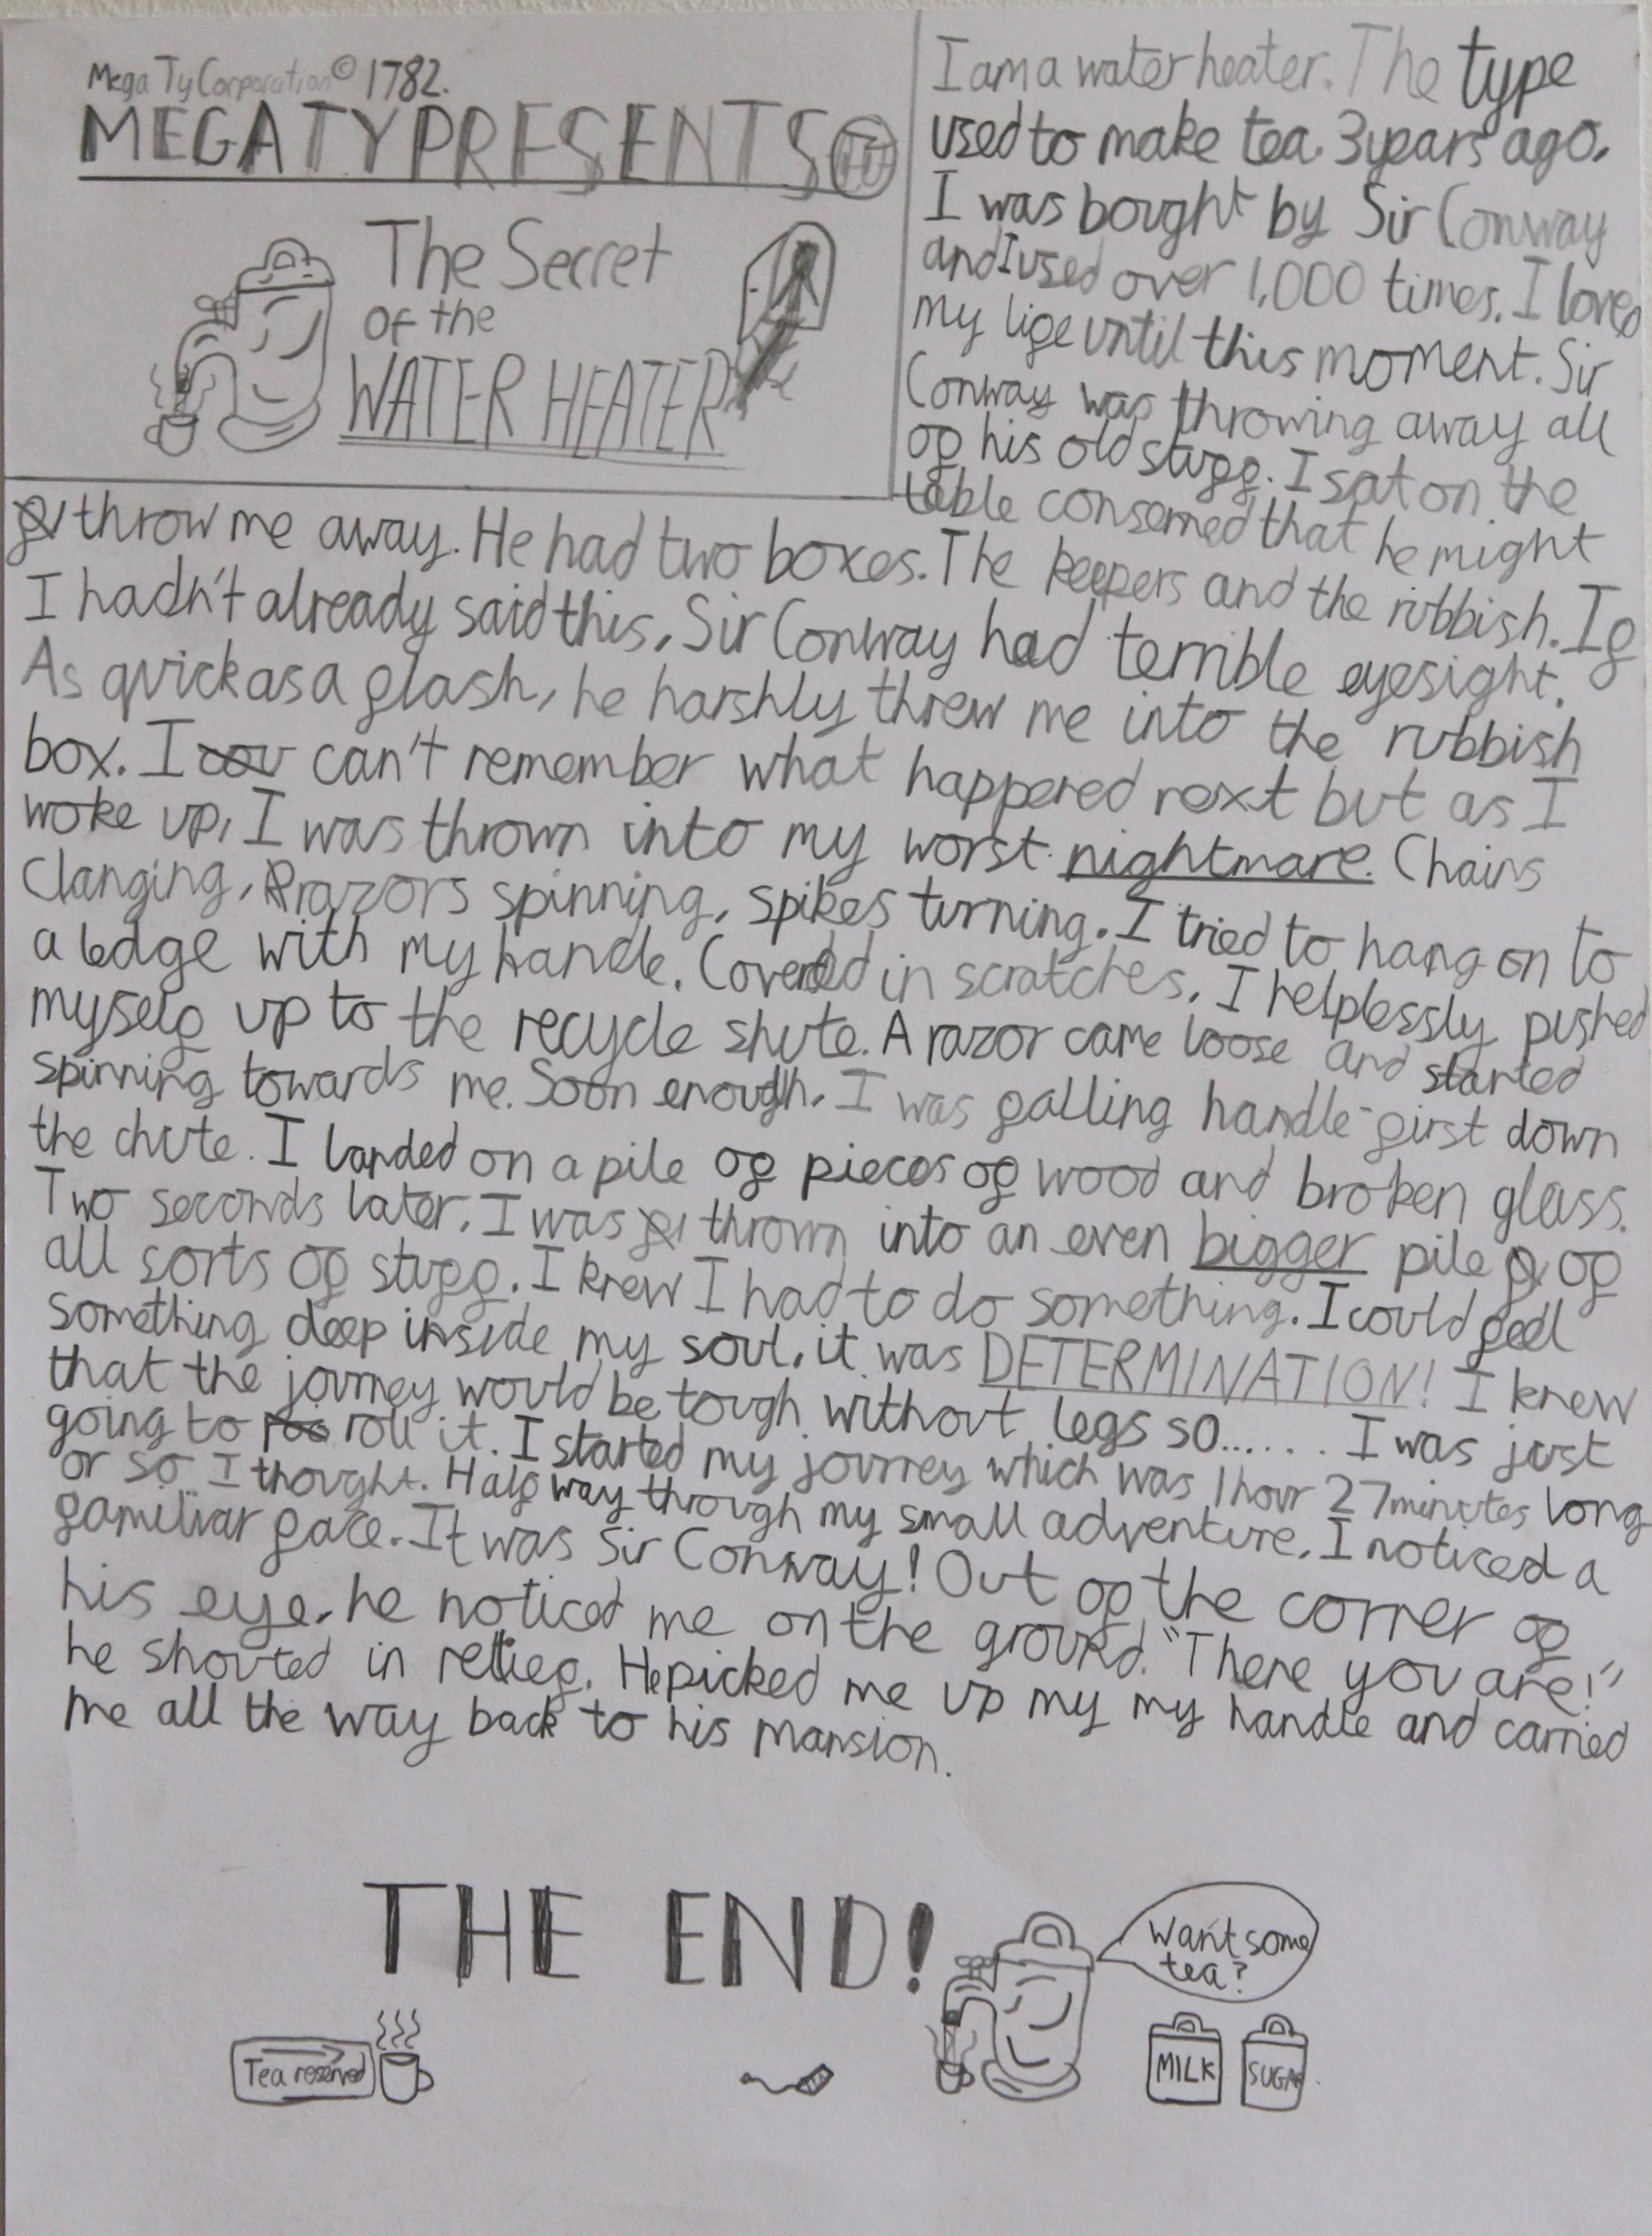 Mega Ty Corporation © 1782.
MEGA TY PRESENTS
The Secret
OF the
WATER HEATER
I am a water heater. The type
used to make tea. 3 years ago,
I was bought by Sir Conway
and I used over 1,000 times. I loved
my life until this moment. Sir
Conway was throwing away all
of his old stuff. I sat on the
table conserned that he might
throw me away. He had two boxes. The keepers and the rubbish. If
I hadn't already said this, Sir Conway had terrible eyesight.
As quick as a flash, he harshly threw me into the rubbish
box. I cou can't remember what happened next but as I
woke up, I was thrown into my worst nightmare. Chains
Clanging, razors spinning, spikes turning. I tried to hang on to
a ledge with my handle. Covered in scratches, I helplessly pushed
myself up to the recycle shute. A razor came loose and started
spinning towards me. Soon enough, I was falling handle-first down
the chute. I landed on a pile of pieces of wood and broken glass.
Two seconds later, I was thrown into an even bigger pile of
all sorts of stuff. I knew I had to do something. I could feel
something deep inside my soul, it was DETERMINATION! I knew
that the journey would be tough without legs so...... I was just
going to roll it. I started my journey which was 1 hour 27 minutes long
or so I thought. Half way through my small adventure, I noticed a
familiar face. It was Sir Conway! Out of the corner of
his eye, he noticed me on the ground. "There you are!"
he shouted in relief. He picked me up my my handle and carried
me all the way back to his mansion.
THE END!
Want some
tea?
Tea reserved
MILK
SUGAR